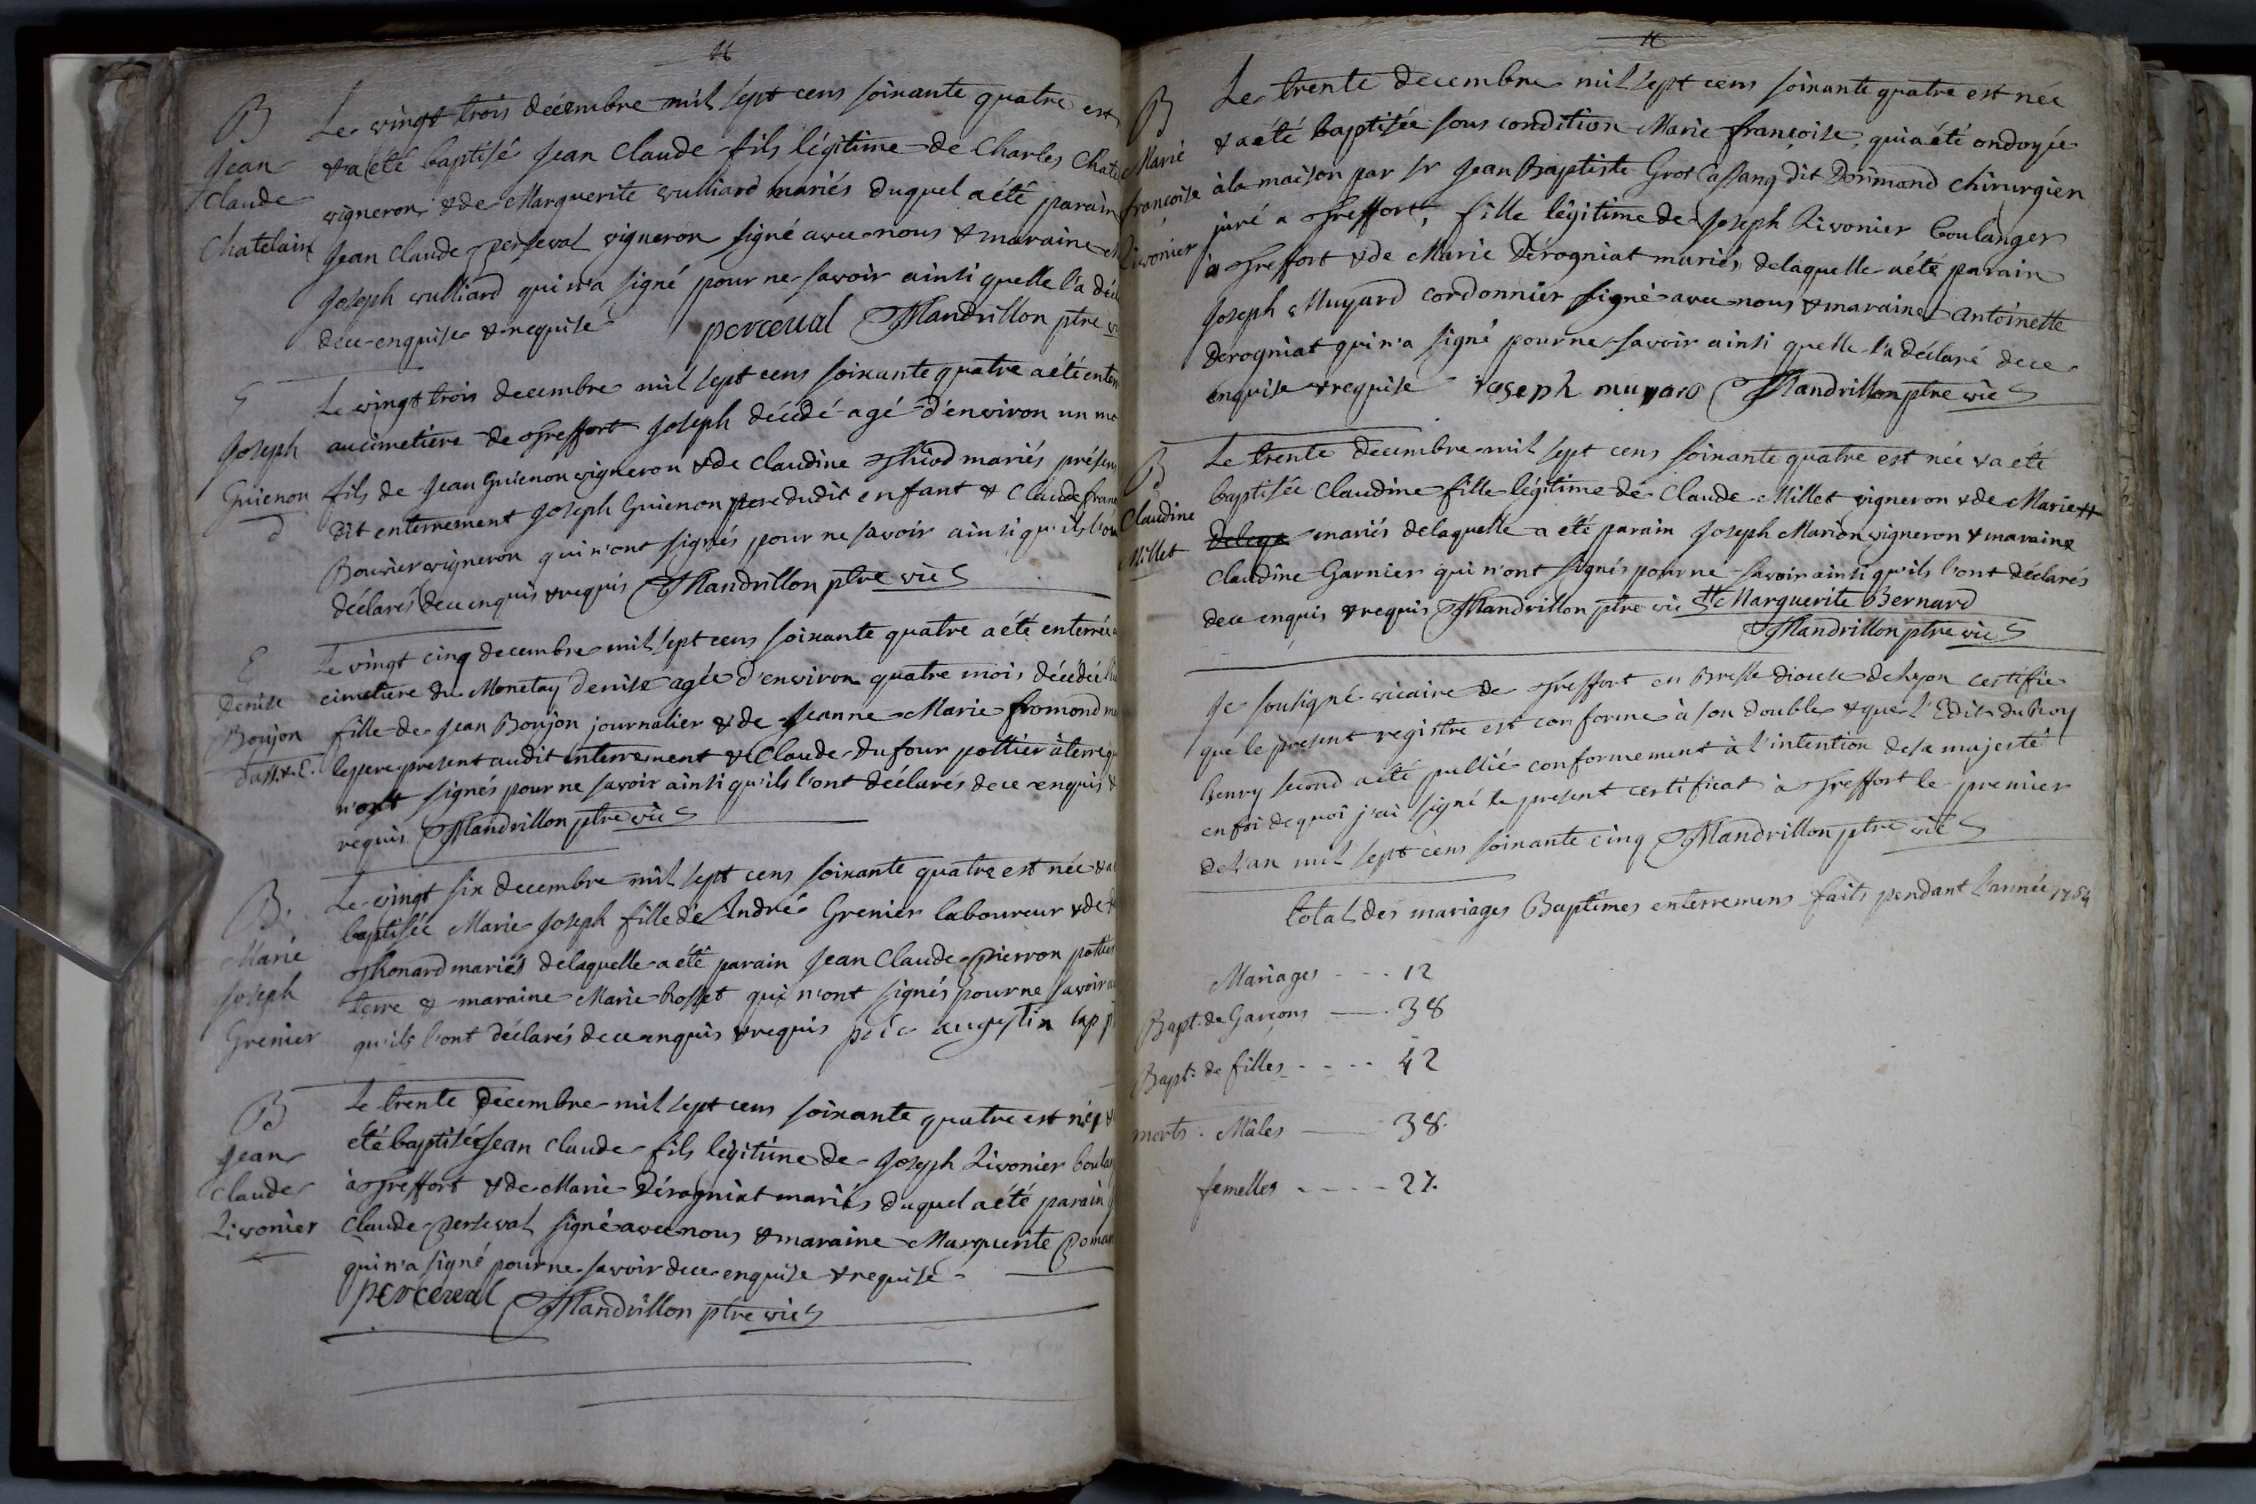 B
Jean
Claude
Chatelain
Le vingt trois décembre mil sept cens soixante quatre est
& a été baptisé Jean Claude fils légitime de Charles Chate
vigneron & de Marguerite vulliard mariés duquel a été parain
Jean Claude perseval vigneron signé avec nous & maraine
Joseph vulliard qui n'a signé pour ne savoir ainsi quelle l'a déc
de ce enquise & requise perceval Mandrillon ptre vi
E
Joseph
Guienon
Le vingt trois decembre mil sept cens soixante quatre a été enter
au cimetiere de Treffort Joseph décédé agé d'environ un mo
fils de Jean Guienon vigneron & de Claudine Thiod mariés présen
dit enterrement Joseph Guienon pere dudit enfant & Claude fran
Bouvier vigneron qui n'ont signés pour ne savoir ainsi qu'ils l'on
déclarés de ce enquis & requis Mandrillon ptre vic
E
Denise
Boujon
Le vingt cinq decembre mil sept cens soixante quatre a été enterrée
cimetiere du Monetay denise agée d'environ quatre mois décédée
fille de Jean Boujon journalier & de Jeanne Marie fromond m
le pere present audit enterrement & Claude Dufour pottier à terre q
n'ont signés pour ne savoir ainsi qu'ils l'ont déclarés de ce enquis &
requis Mandrillon ptre vic
B
Marie
Joseph
Grenier
Le vingt six decembre mil sept cens soixante quatre est née & a
baptisée Marie Joseph fille de André Grenier laboureur & de
Thonard mariés delaquelle a été parain Jean Claude Pierron pottier
terre & maraine Marie Rosset qui n'ont signés pour ne savoir a
qu'ils l'ont déclarés de ce enquis & requis augustin cap
B
Jean
Claude
Livonier
Le trente decembre mil sept cens soixante quatre est né &
été baptisé Jean Claude fils légitime de Joseph Livonier boulan
à Treffort & de Marie Dérogniat mariés duquel a été parain
Claude Perseval signé avec nous & maraine Marguerite Doman
qui n'a signé pour ne savoir de ce enquise & requise
perceval Mandrillon ptre vic
B
Marie
françoise
Livonier
Le trente decembre mil sept cens soixante quatre est née
& a été baptisée sous condition Marie françoise, qui a été ondoyée
à la maison par Sr Jean Baptiste Gros Cassang dit Dormand chirurgien
juré a Treffort, fille légitime de Joseph Livonier boulanger
à Treffort & de Marie Dérogniat mariés delaquelle a été parain
Joseph Muyard cordonnier signé avec nous & maraine Antoinette
derogniat qui n'a signé pour ne savoir ainsi quelle l'a déclaré de ce
enquise & requise Joseph muyard Mandrillon ptre vic
B
Claudine
Millet
Le trente decembre mil sept cens soixante quatre est née & a été
baptisée Claudine fille légitime de Claude Millet vigneron & de Marie
mariés delaquelle a été parain Joseph Marion vigneron & maraine
Claudine Garnier qui n'ont signés pour ne savoir ainsi qu'ils l'ont déclarés
de ce enquis & requis Mandrillon ptre vic Marguerite Bernard
Mandrillon ptre vic
Je soussigné vicaire de Treffort en Bresse diocese de Lyon certifie
que le présent registre est conforme à son double & que l'Edit du Roy
henry second a été publié conformement à l'intention de sa majesté
en foi de quoi j'ai signé le present certificat à Treffort le premier
de l'an mil sept cens soixante cinq Mandrillon ptre vic
total des mariages Baptêmes enterremens faits pendant l'année 1764
Mariages - - - 12
Bapt. de Garçons — 38
Bapt. de filles - - - - 42
morts. Mâles — 38.
femelles - - - - 27.